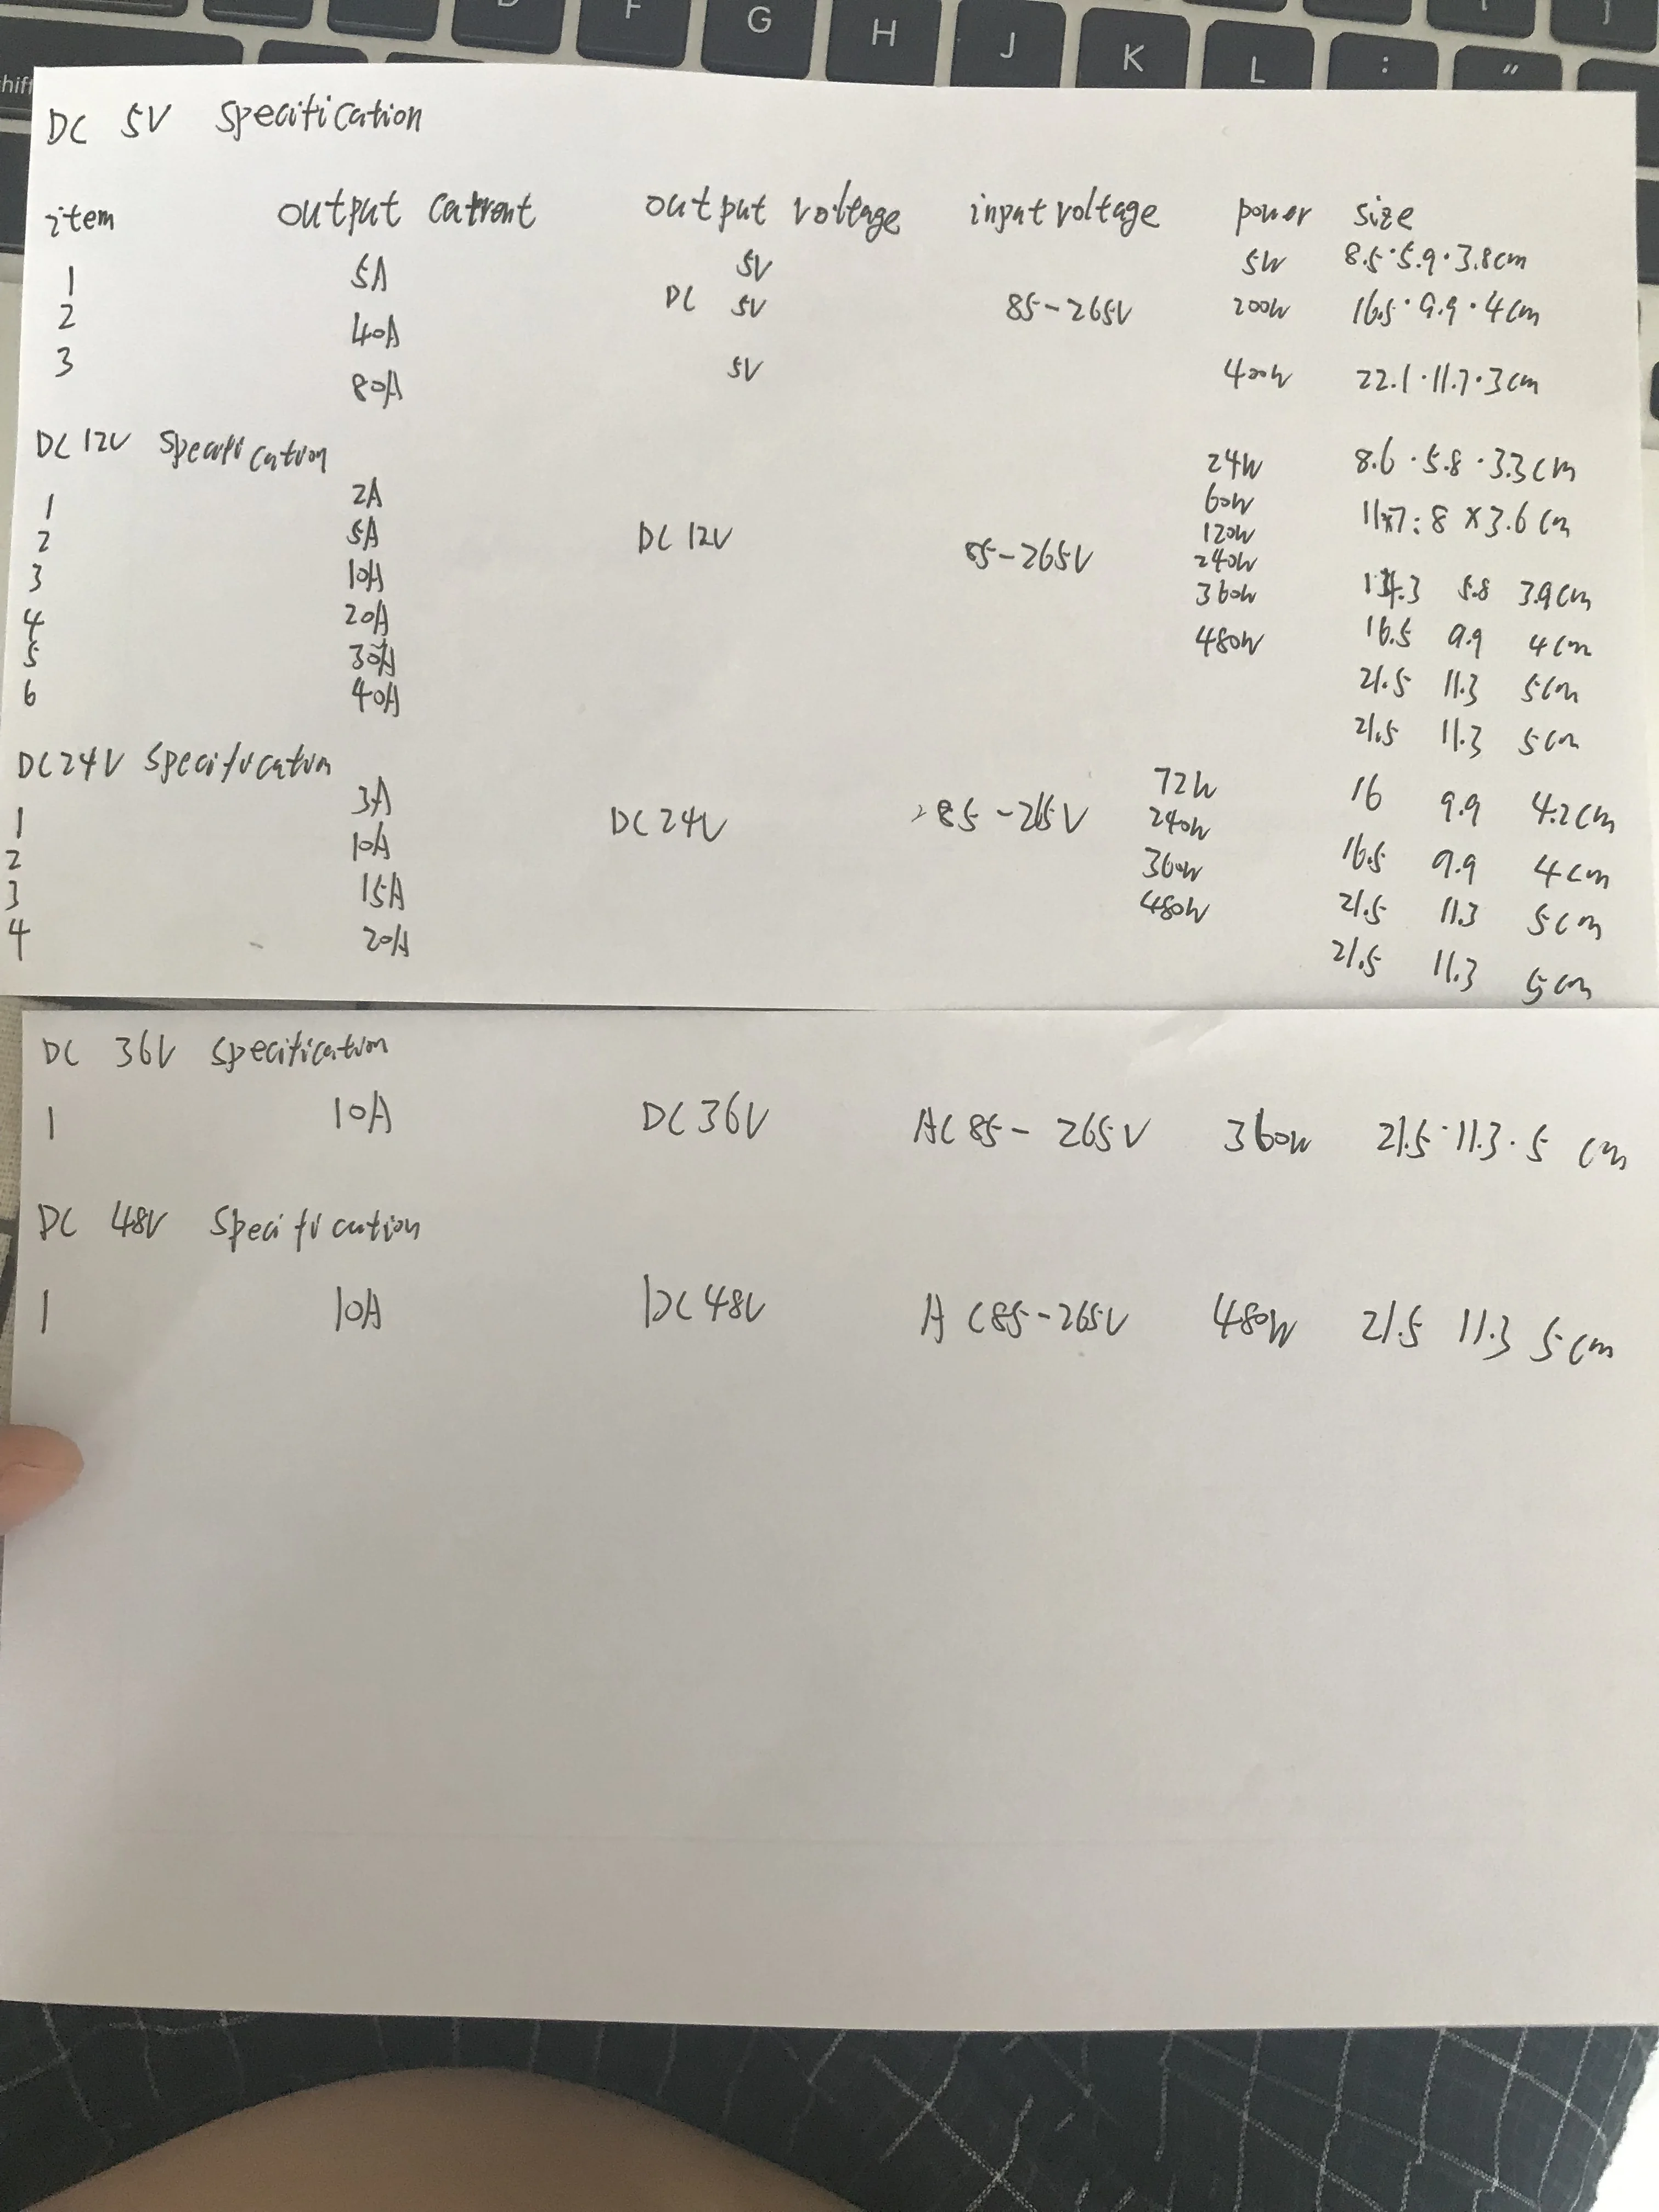 D F G H J K L : " [ ]
shift
DC 5V specification
item output current output voltage input voltage power size
1 5A 5V 5W 8.5·5.9·3.8cm
2 40A DC 5V 85-265V 200W 16.5·9.9·4cm
3 80A 5V 400W 22.1·11.7·3cm
DC12V specification
1 2A 24W 8.6·5.8·3.3cm
2 5A DC12V 85-265V 60W 11x7:8x3.6cm
3 10A 120W 5.8 3.9cm
4 20A 240W 16.5 9.9 4cm
5 30A 360W 21.5 11.3 5cm
6 40A 480W 21.5 11.3 5cm
DC24V specification
1 3A DC24V 85-265V 72W 16 9.9 4.2cm
2 10A 240W 16.5 9.9 4cm
3 15A 360W 21.5 11.3 5cm
4 20A 480W 21.5 11.3 5cm
DC 36V specification
1 10A DC36V AC85-265V 360W 21.5·11.3·5 cm
DC 48V specification
1 10A DC48V AC85-265V 480W 21.5 11.3 5cm